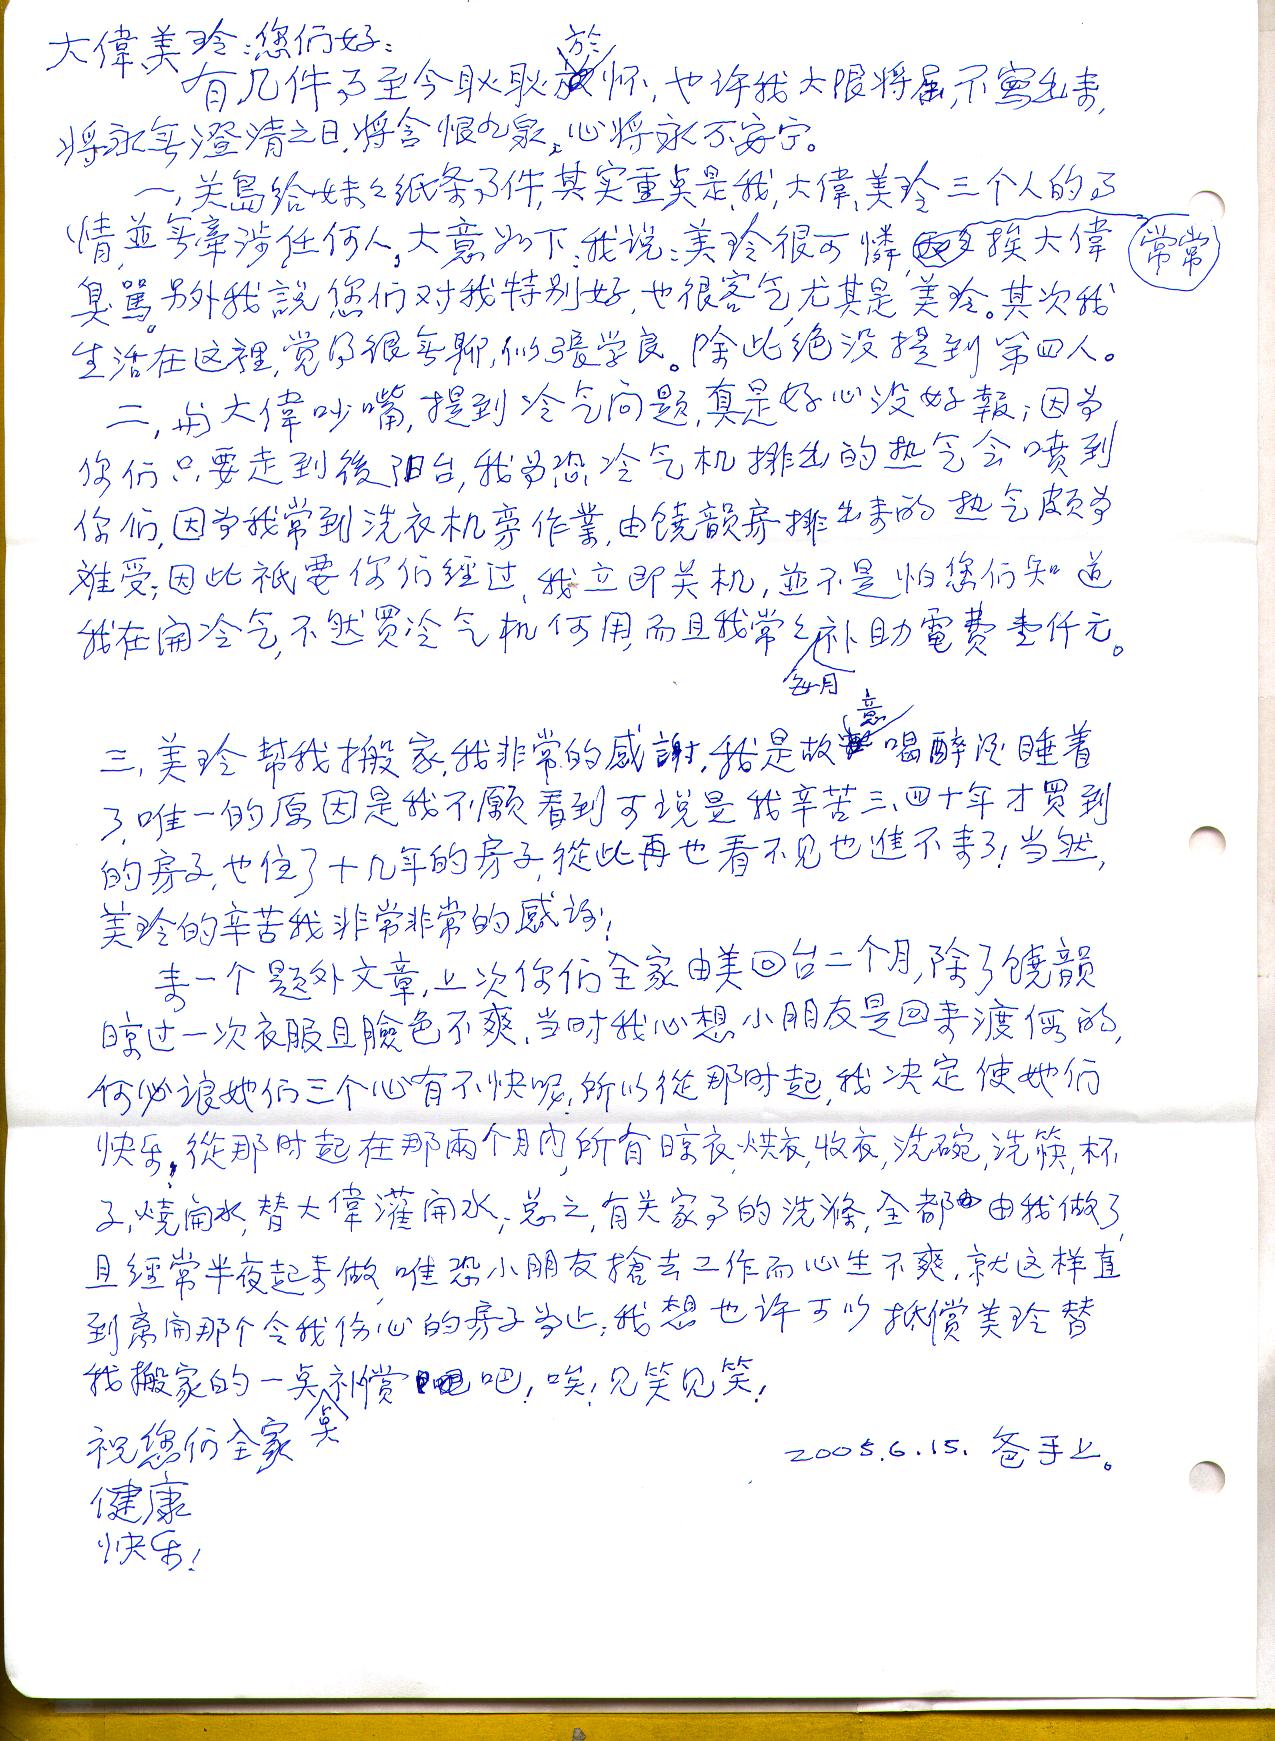 大偉、美玲:您们好:
有几件事至今耿耿於怀,也许我大限将屆,不寫出来,
将永無澄清之日,将含恨九泉,心将永不安宁。
一,关島给妹妹纸条事件,其实重点是,我,大偉,美玲三个人的事
情,並無牽涉任何人,大意如下:我说:美玲很可憐,常常挨大偉
臭罵。另外我説您们对我特别好,也很客气,尤其是美玲。其次我
生活在这裡,觉得很無聊,似張学良。除此绝没提到第四人。
二,与大偉吵嘴,提到冷气问题,真是好心没好報;因为
你们只要走到後阳台,我为恐冷气机排出的热气会噴到
你们,因为我常到洗衣机旁作業,由饒韻房排出来的热气颇为
难受;因此祇要你们经过,我立即关机,並不是怕您们知道
我在開冷气,不然買冷气机何用,而且我常常每月补助電費壹仟元。
三,美玲幫我搬家,我非常的感謝,我是故意喝醉酒睡着
了,唯一的原因是我不願看到可说是我辛苦三、四十年才買到
的房子,也住了十几年的房子,從此再也看不见也進不来了!当然,
美玲的辛苦我非常非常的感谢!
来一个题外文章,上次你们全家由美回台二个月,除了饒韻
晾过一次衣服且臉色不爽,当时我心想小朋友是回来渡假的,
何必讓她们三个心有不快呢!所以從那时起,我决定使她们
快乐,從那时起在那兩个月内,所有晾衣,烘衣,收衣,洗碗,洗筷,杯
子,燒開水,替大偉灌開水,总之,有关家事的洗滌,全都由我做了,
且經常半夜起来做,唯恐小朋友搶去工作而心生不爽,就这样直
到离開那个令我伤心的房子为止;我想也许可以抵償美玲替
我搬家的一点点补赏吧!唉!见笑见笑!
祝您们全家
健康
快乐!
2005.6.15. 爸手上。